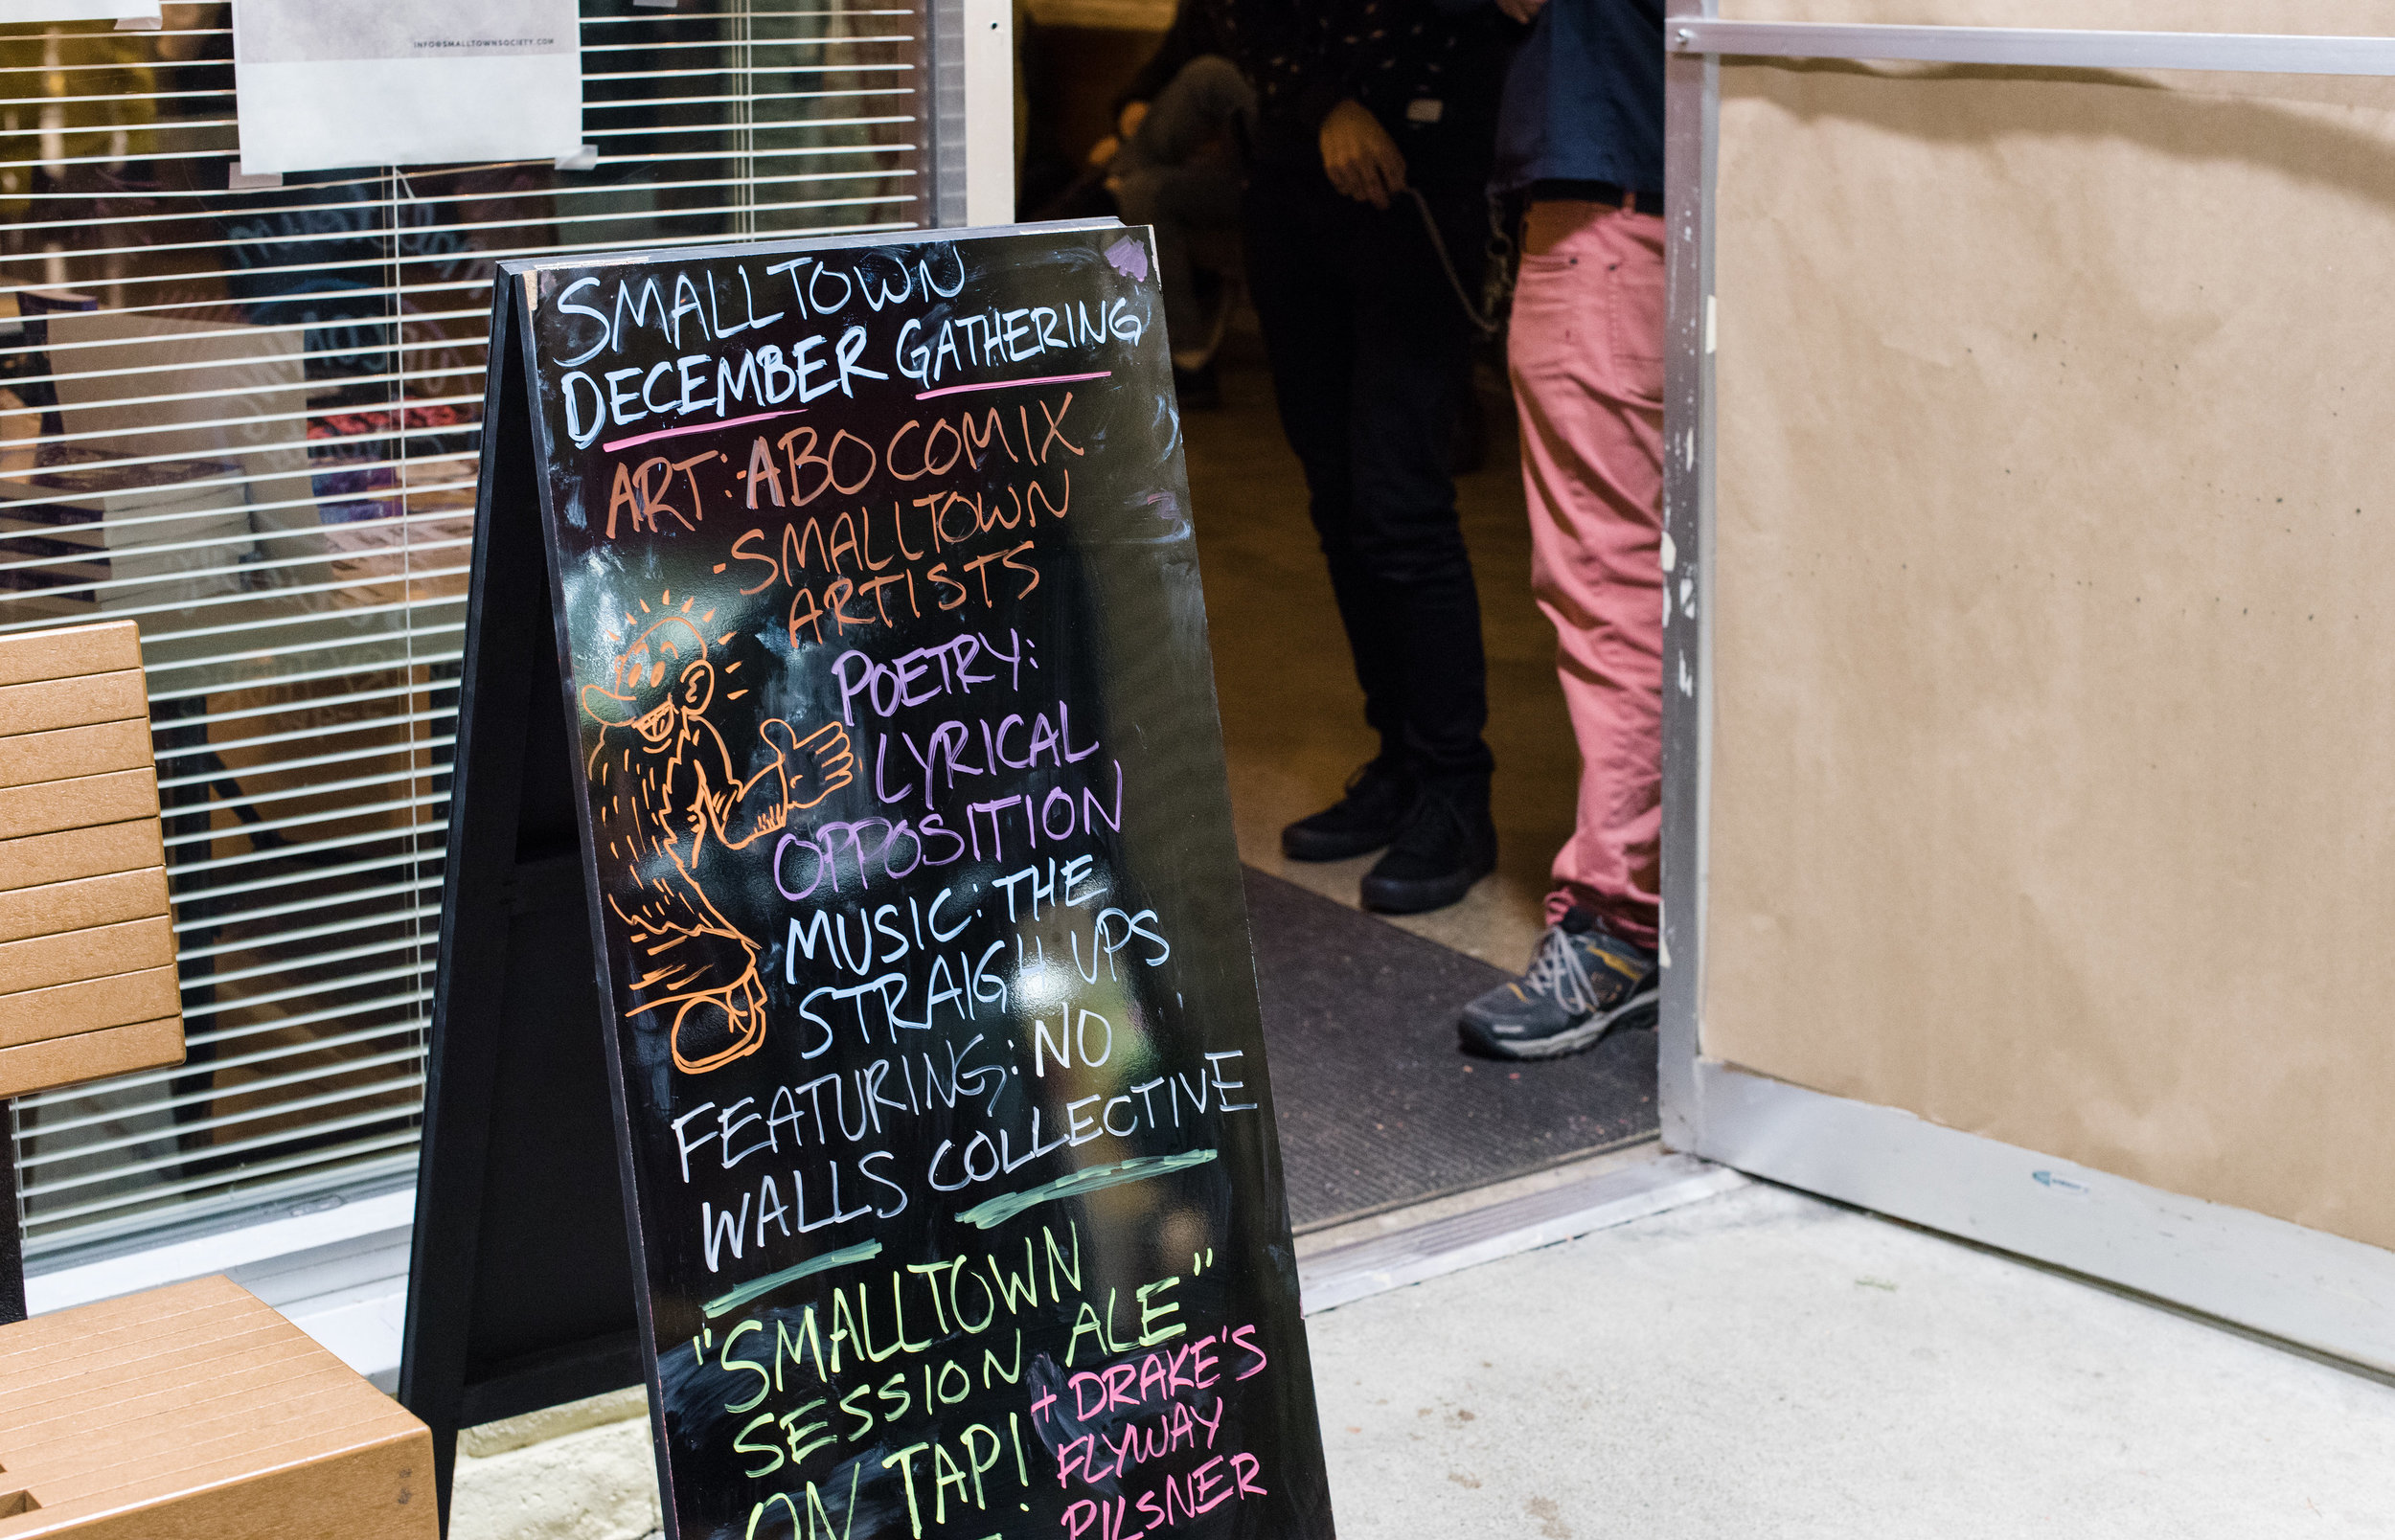 INFO@SMALLTOWNSOCIETY.COM
SMALLTOWN
DECEMBER GATHERING
ART: -ABO COMIX
-SMALLTOWN
ARTISTS
POETRY:
LYRICAL
OPPOSITION
MUSIC: THE
STRAIGH UPS
FEATURING: NO
WALLS COLLECTIVE
"SMALLTOWN
SESSION ALE"
ON TAP!
+ DRAKE'S
FLYWAY
PILSNER